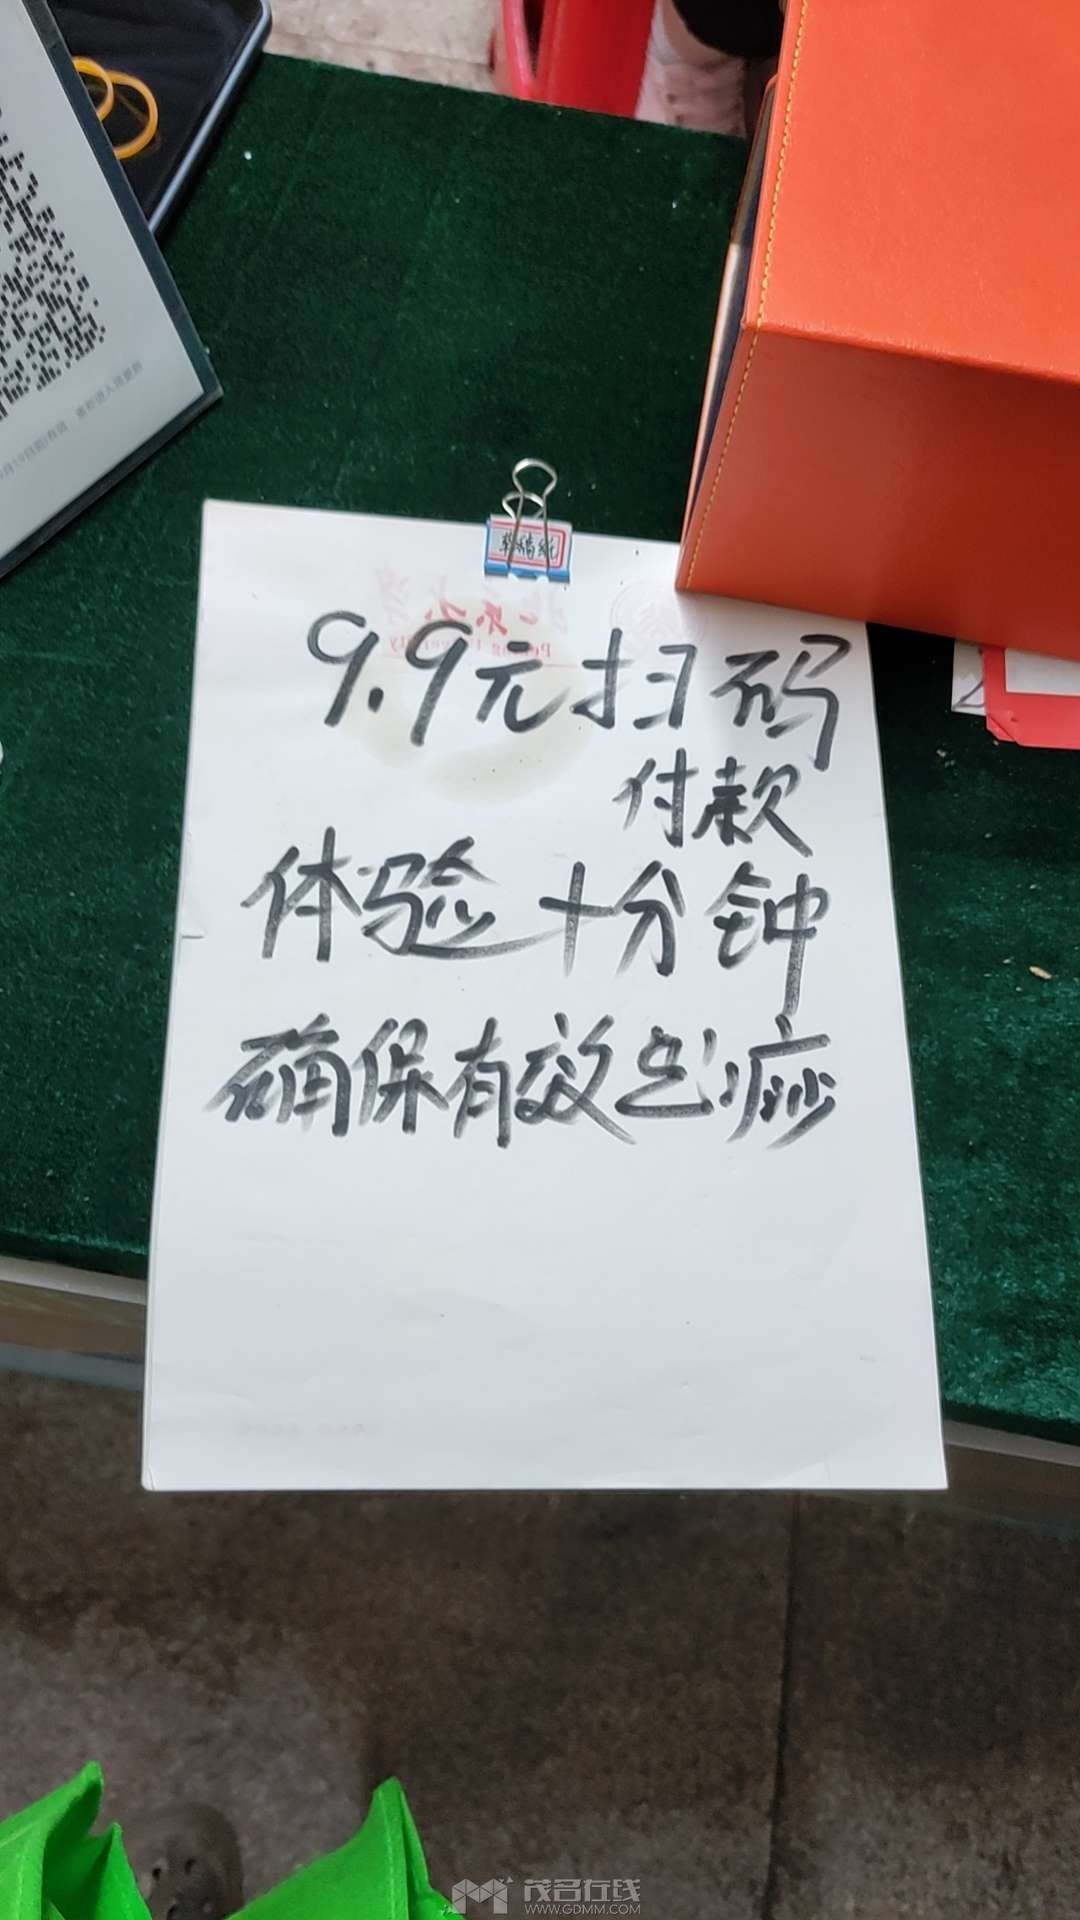 9.9元扫码
付款
体验十分钟
确保有效出痧
茂名在线
WWW.GDMM.COM